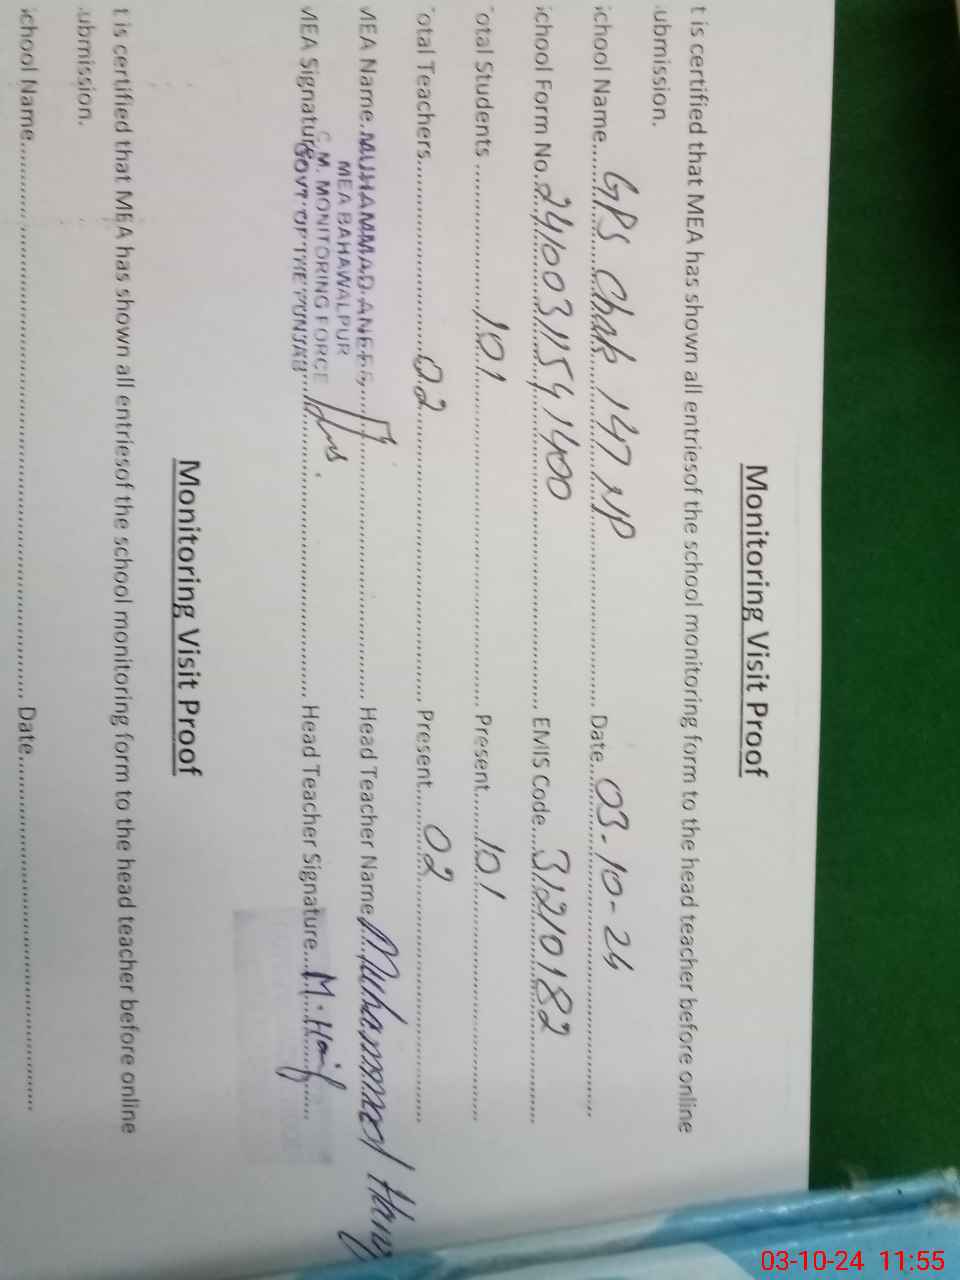 Monitoring Visit Proof
t is certified that MEA has shown all entriesof the school monitoring form to the head teacher before online
ubmission.
chool Name...... GPS Chak 147 NP ...... Date...... 03-10-24
chool Form No. 24100311541400 ...... EMIS Code.... 31210182
otal Students ...... 101 ...... Present...... 101
otal Teachers...... 02 ...... Present...... 02
MEA Name. MUHAMMAD ANEES ...... Head Teacher Name Muhammad Hanif
MEA BAHAWALPUR
C.M. MONITORING FORCE
MEA Signature GOVT OF THE PUNJAB ...... Head Teacher Signature.... M. Hanif
Monitoring Visit Proof
t is certified that MEA has shown all entriesof the school monitoring form to the head teacher before online
ubmission.
chool Name...... Date......
03-10-24 11:55